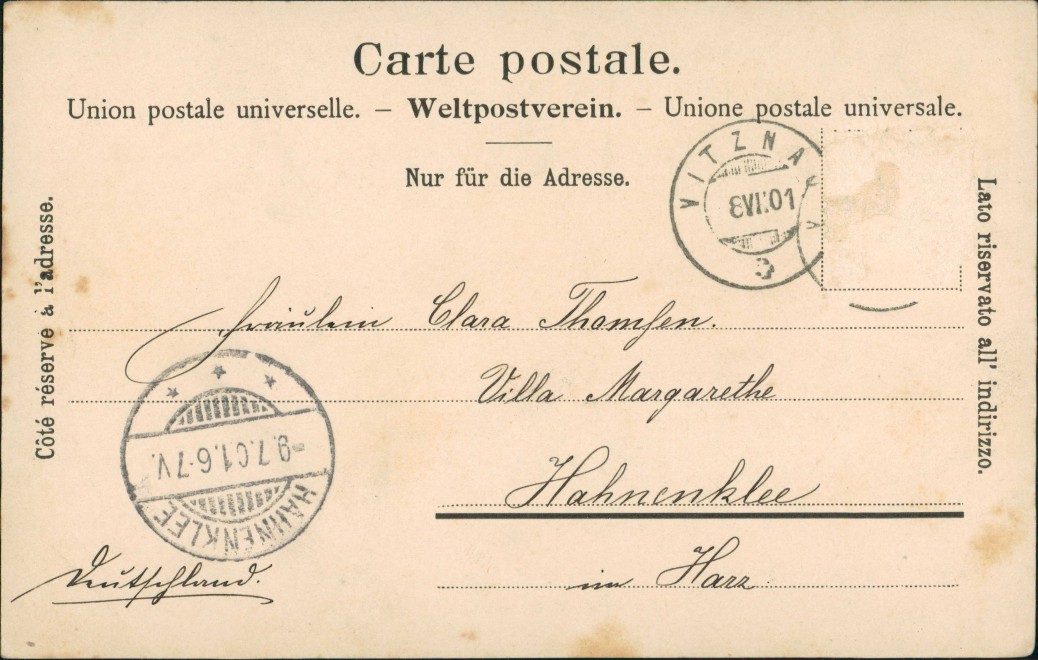 Carte postale.
Union postale universelle. – Weltpostverein. – Unione postale universale.
Nur für die Adresse.
Côté réservé à l'adresse.
Lato riservato all' indirizzo.
VITZNAU
8VII.01
Fräulein Clara Thomsen.
Villa Margarethe
Hahnenklee
im Harz
-9.7.01.6-7V.
HAHNENKLEE
Deutschland.